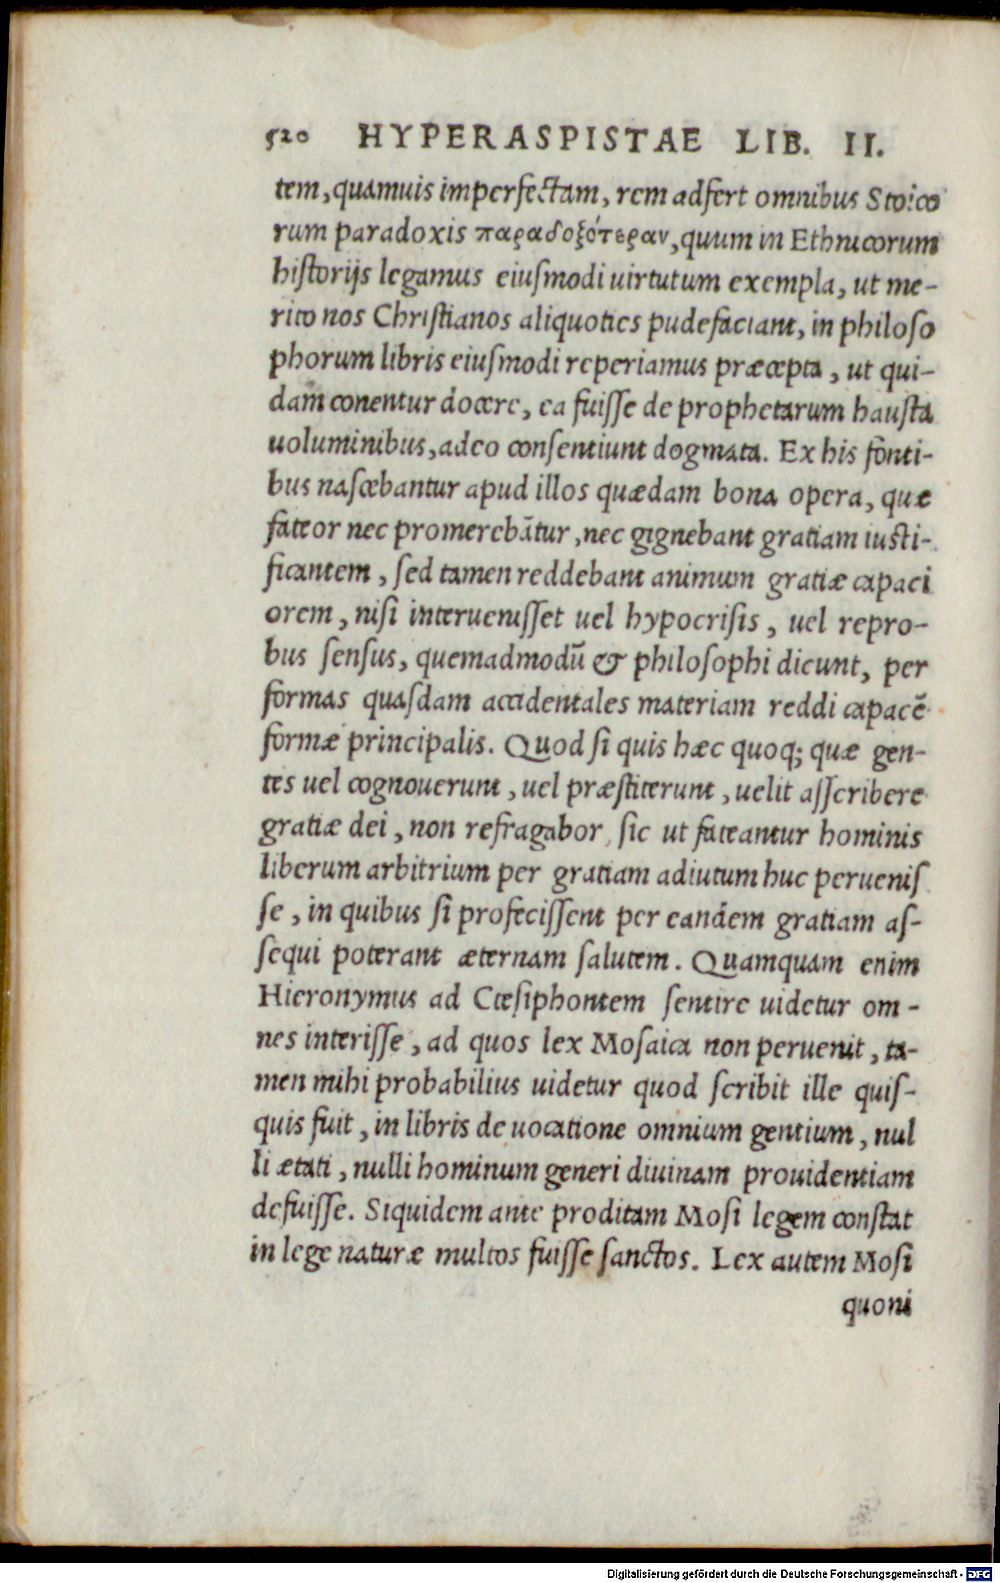 520 HYPERASPISTAE LIB. II.
tem, quamuis imperfectam, rem adfert omnibus Stoico
rum paradoxis παραδοξότεραν, quum in Ethnicorum
historijs legamus eiusmodi uirtutum exempla, ut me-
rito nos Christianos aliquoties pudefaciant, in philoso
phorum libris eiusmodi reperiamus præcepta, ut qui-
dam conentur docere, ea fuisse de prophetarum hausta
uoluminibus, adeo consentiunt dogmata. Ex his fonti-
bus nascebantur apud illos quædam bona opera, quæ
fateor nec promerebātur, nec gignebant gratiam iusti-
ficantem, sed tamen reddebant animum gratiæ capaci
orem, nisi interuenisset uel hypocrisis, uel repro-
bus sensus, quemadmodū & philosophi dicunt, per
formas quasdam accidentales materiam reddi capacē
formæ principalis. Quod si quis hæc quoq; quæ gen-
tes uel cognouerunt, uel præstiterunt, uelit asscribere
gratiæ dei, non refragabor, sic ut fateantur hominis
liberum arbitrium per gratiam adiutum huc peruenis
se, in quibus si profecissent per eandem gratiam as-
sequi poterant æternam salutem. Quamquam enim
Hieronymus ad Ctesiphontem sentire uidetur om-
nes interisse, ad quos lex Mosaica non peruenit, ta-
men mihi probabilius uidetur quod scribit ille quis-
quis fuit, in libris de uocatione omnium gentium, nul
li ætati, nulli hominum generi diuinam prouidentiam
defuisse. Siquidem ante proditam Mosi legem constat
in lege naturæ multos fuisse sanctos. Lex autem Mosi
quoni
Digitalisierung gefördert durch die Deutsche Forschungsgemeinschaft - DFG